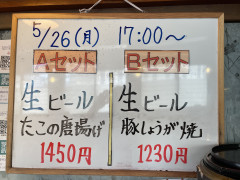 5/26(月) 17:00〜
Aセット
生ビール
たこの唐揚げ
1450円
Bセット
生ビール
豚しょうが焼
1230円